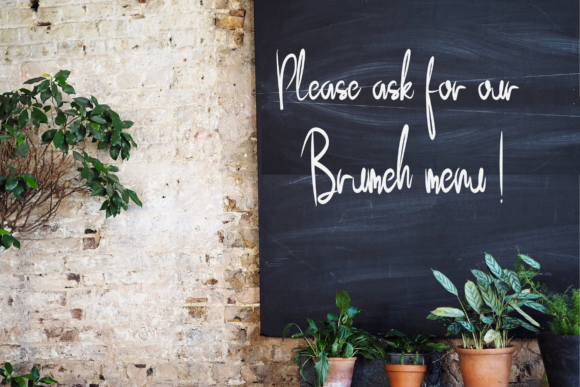 Please ask for our
Brunch menu!